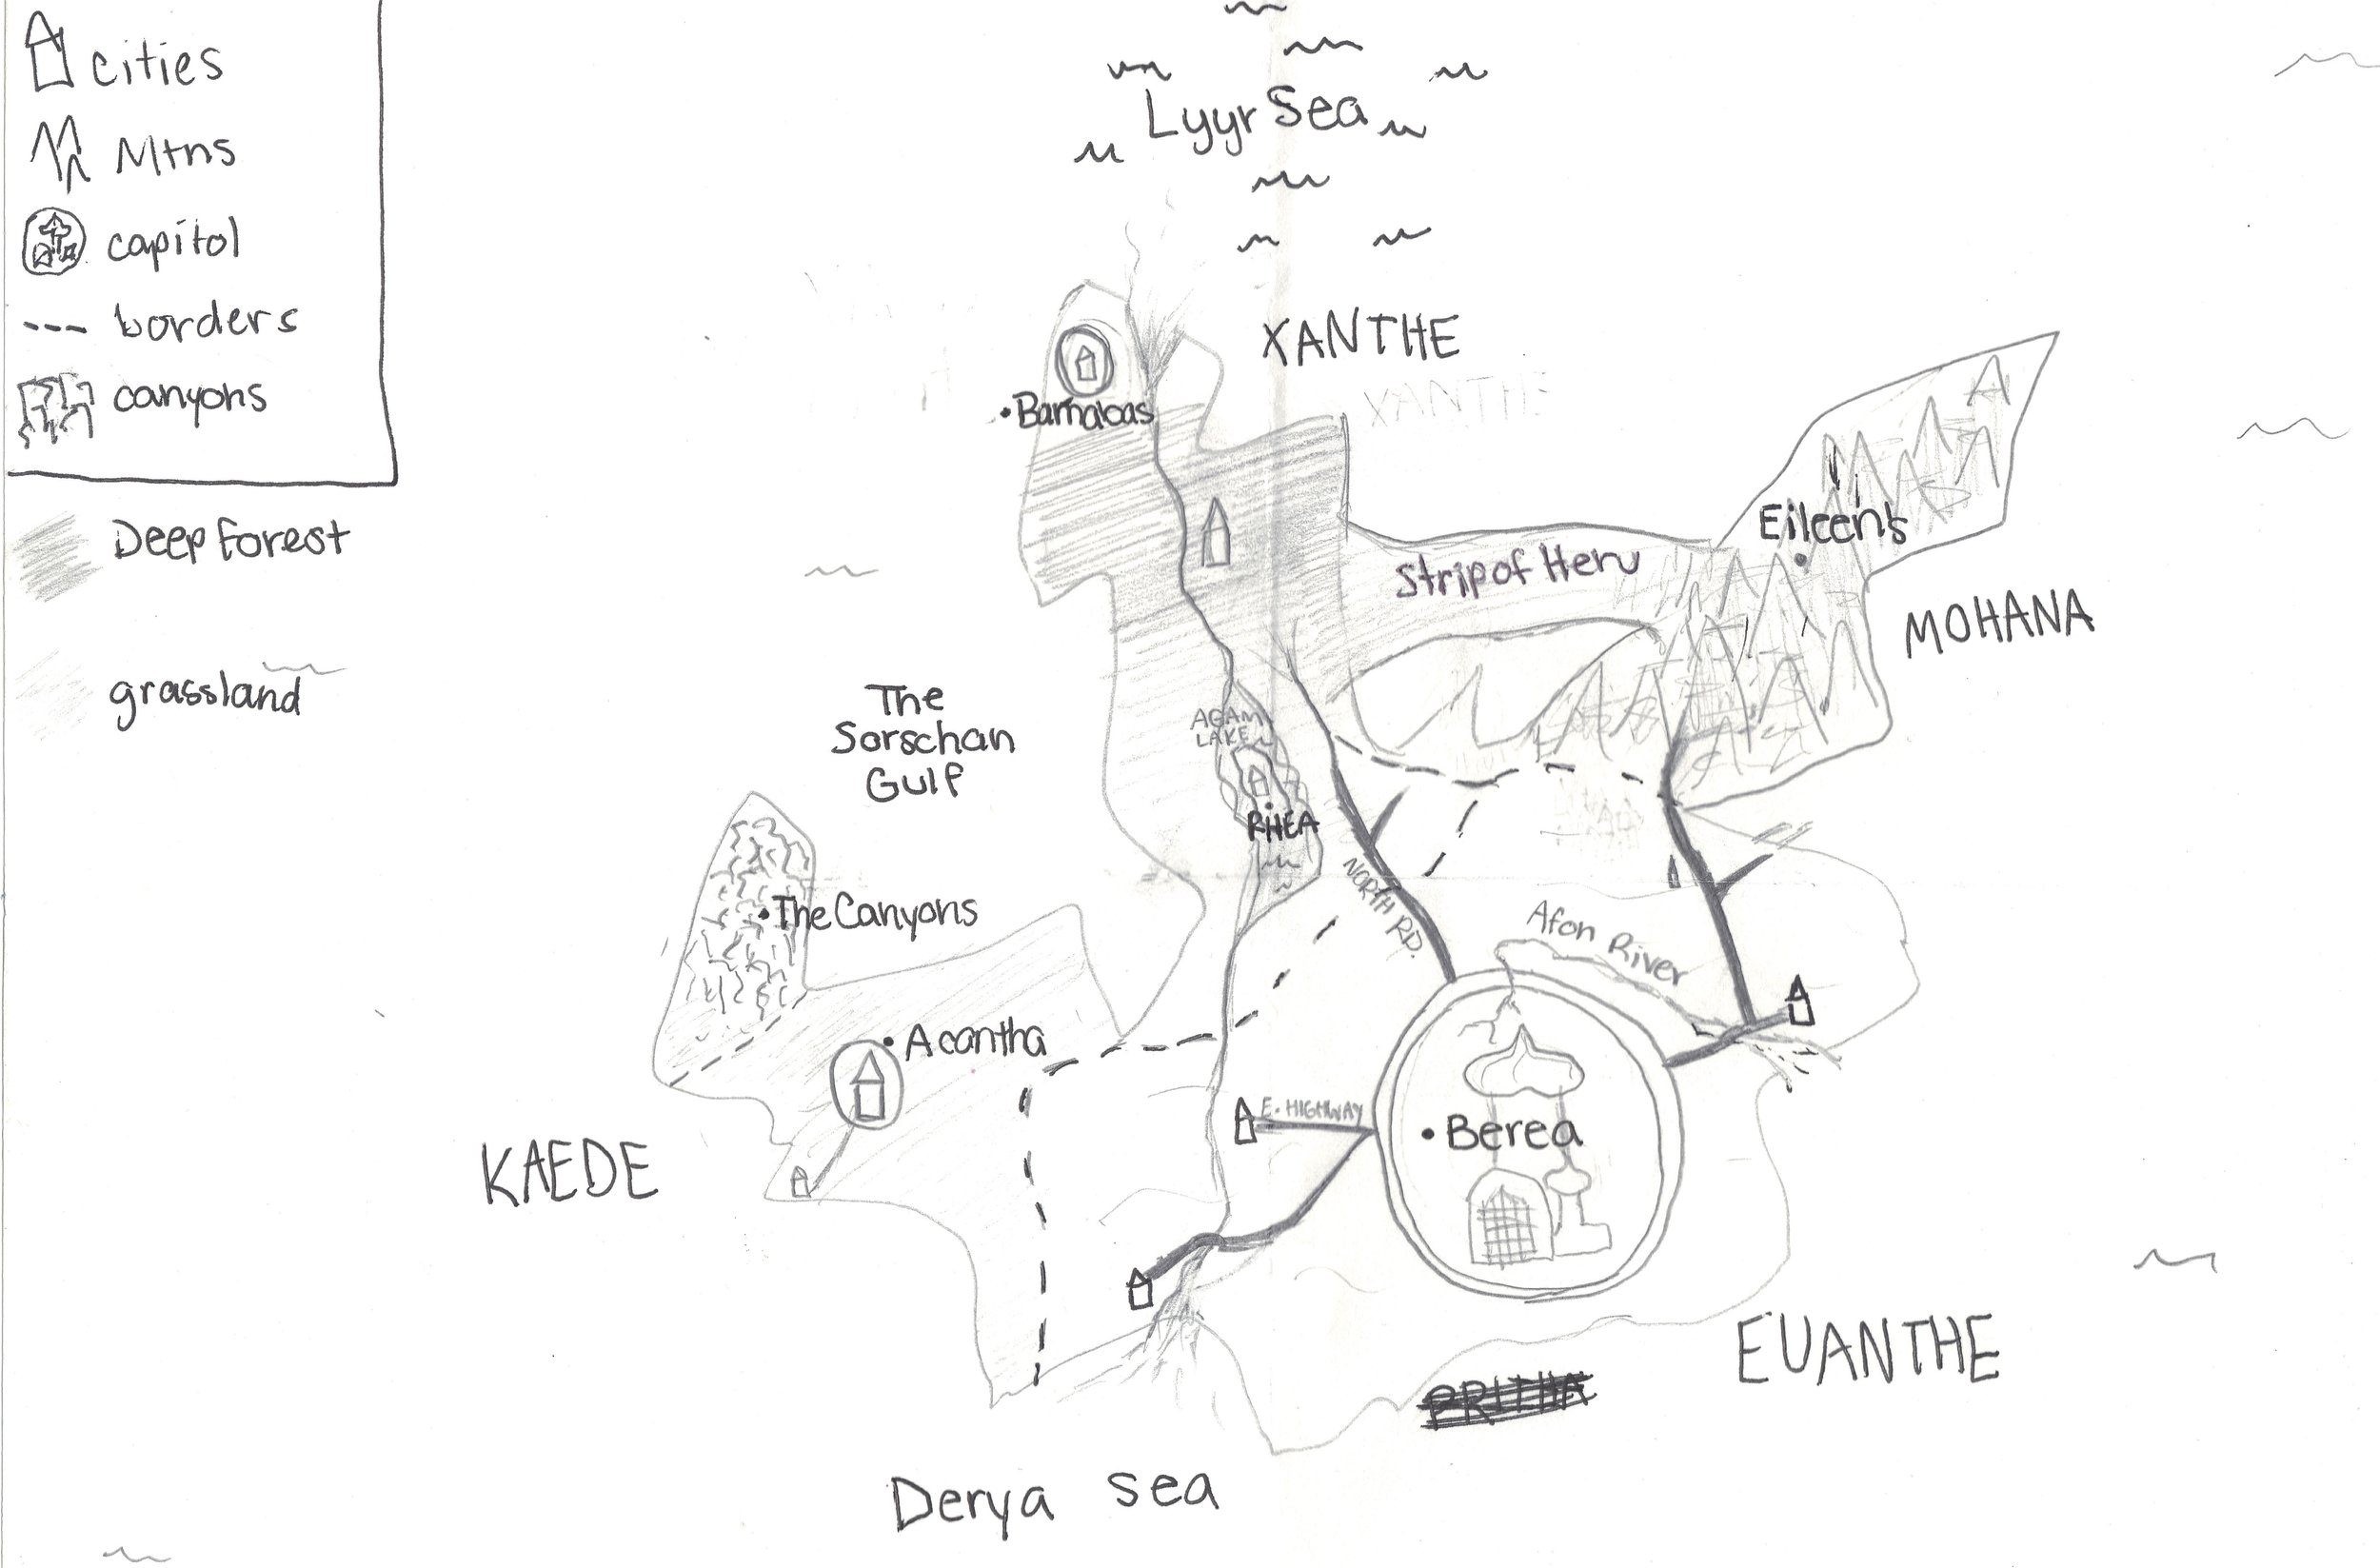 cities
Mtns
capitol
borders
canyons
Deep forest
grassland
Lyyr Sea
XANTHE
XANTHE
Barnabas
Strip of Heru
Eileen's
MOHANA
The
Sorschan
Gulf
AGAM
LAKE
RHEA
NORTH RD.
The Canyons
Afon River
Acantha
E. HIGHWAY
Berea
KAEDE
EUANTHE
PRITHA
Derya sea